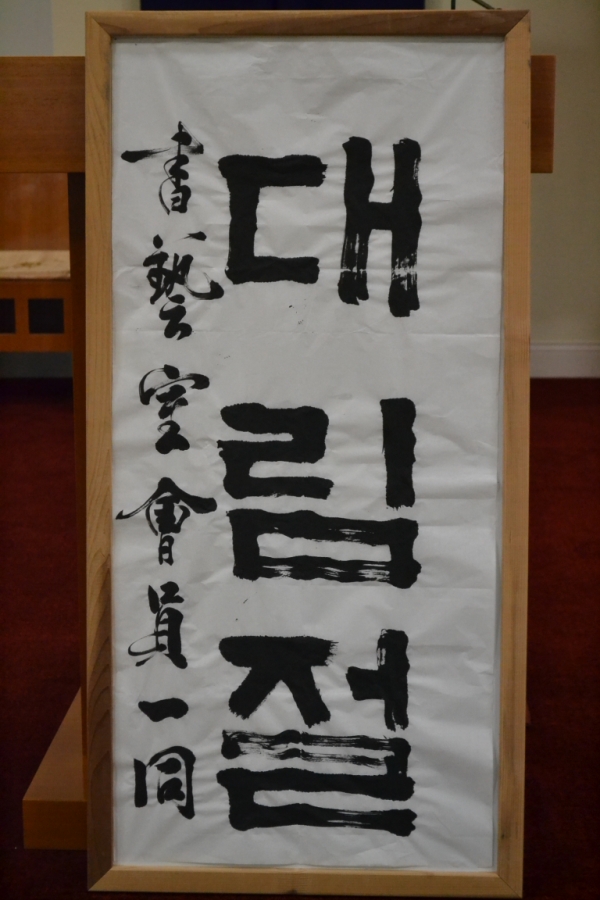 대림절
書藝室會員一同